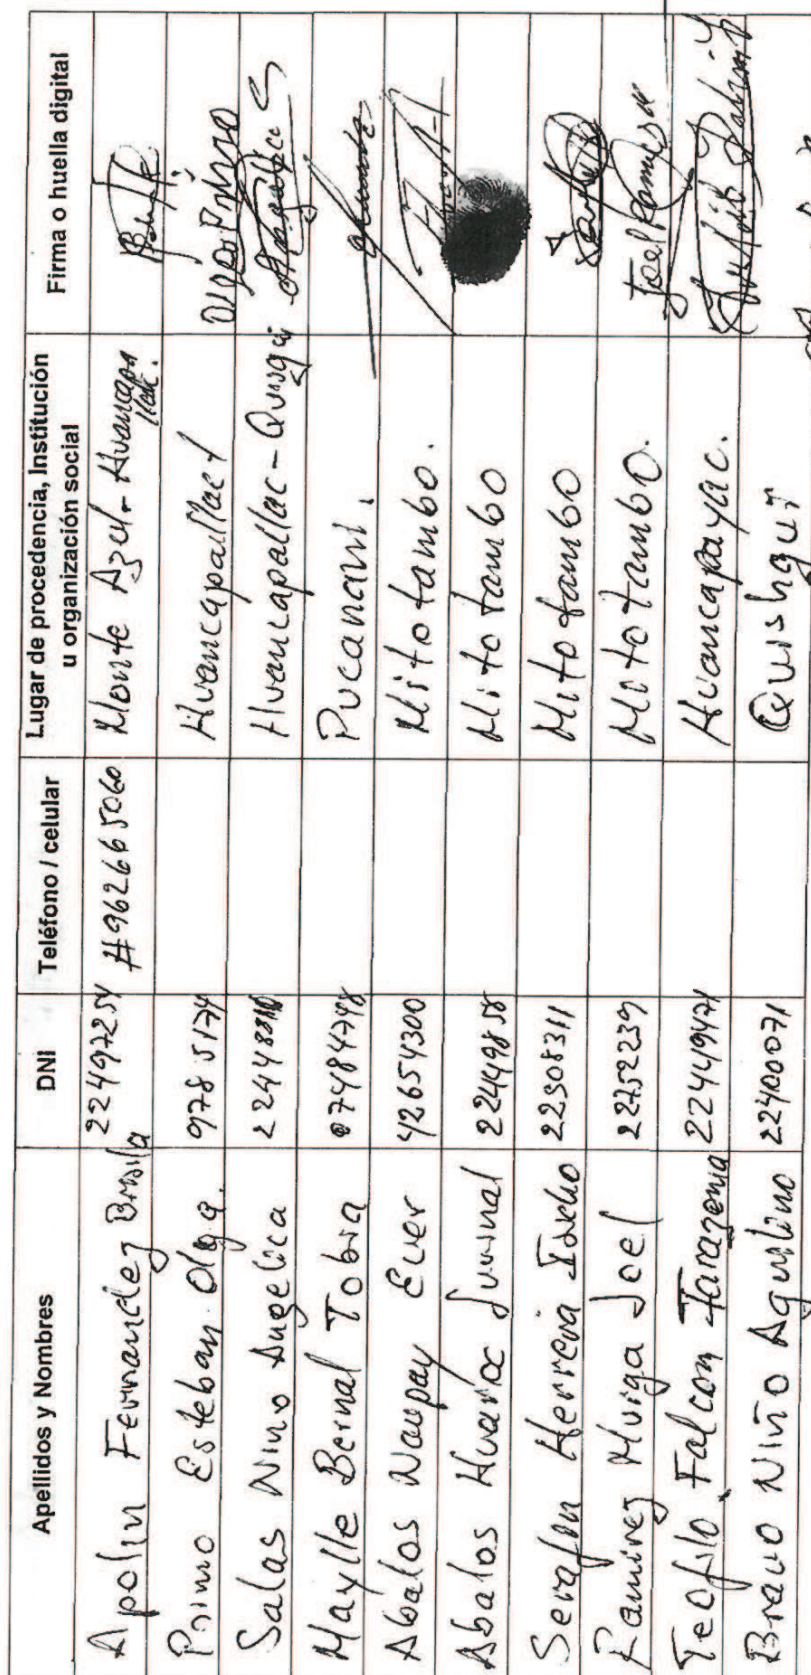 Apellidos y Nombres DNI Teléfono / celular Lugar de procedencia, Institución u organización social Firma o huella digital
Apolin Fernandez Brasila 22497254 #962665060 Monte Azul - Huancapallac.
Primo Esteban Olga. 9785174 Huancapallac
Salas Nino Angelica Huancapallac - Quisqui Angelica S
Maylle Bernal Tobia 07484798 Pucanani.
Abalos Naupay Ever 42654300 Mitotambo.
Abalos Huaroc Juvinal 22449858 Mitotambo
Serafin Herrera 22308311 Mitotambo
Ramirez Murga Joel 22752239 Mitotambo. Joel Ramirez M
Teofilo Falcon Tarazona 22449471 Huancapayac.
Bravo Niño Aquilino 22400071 Quishqui